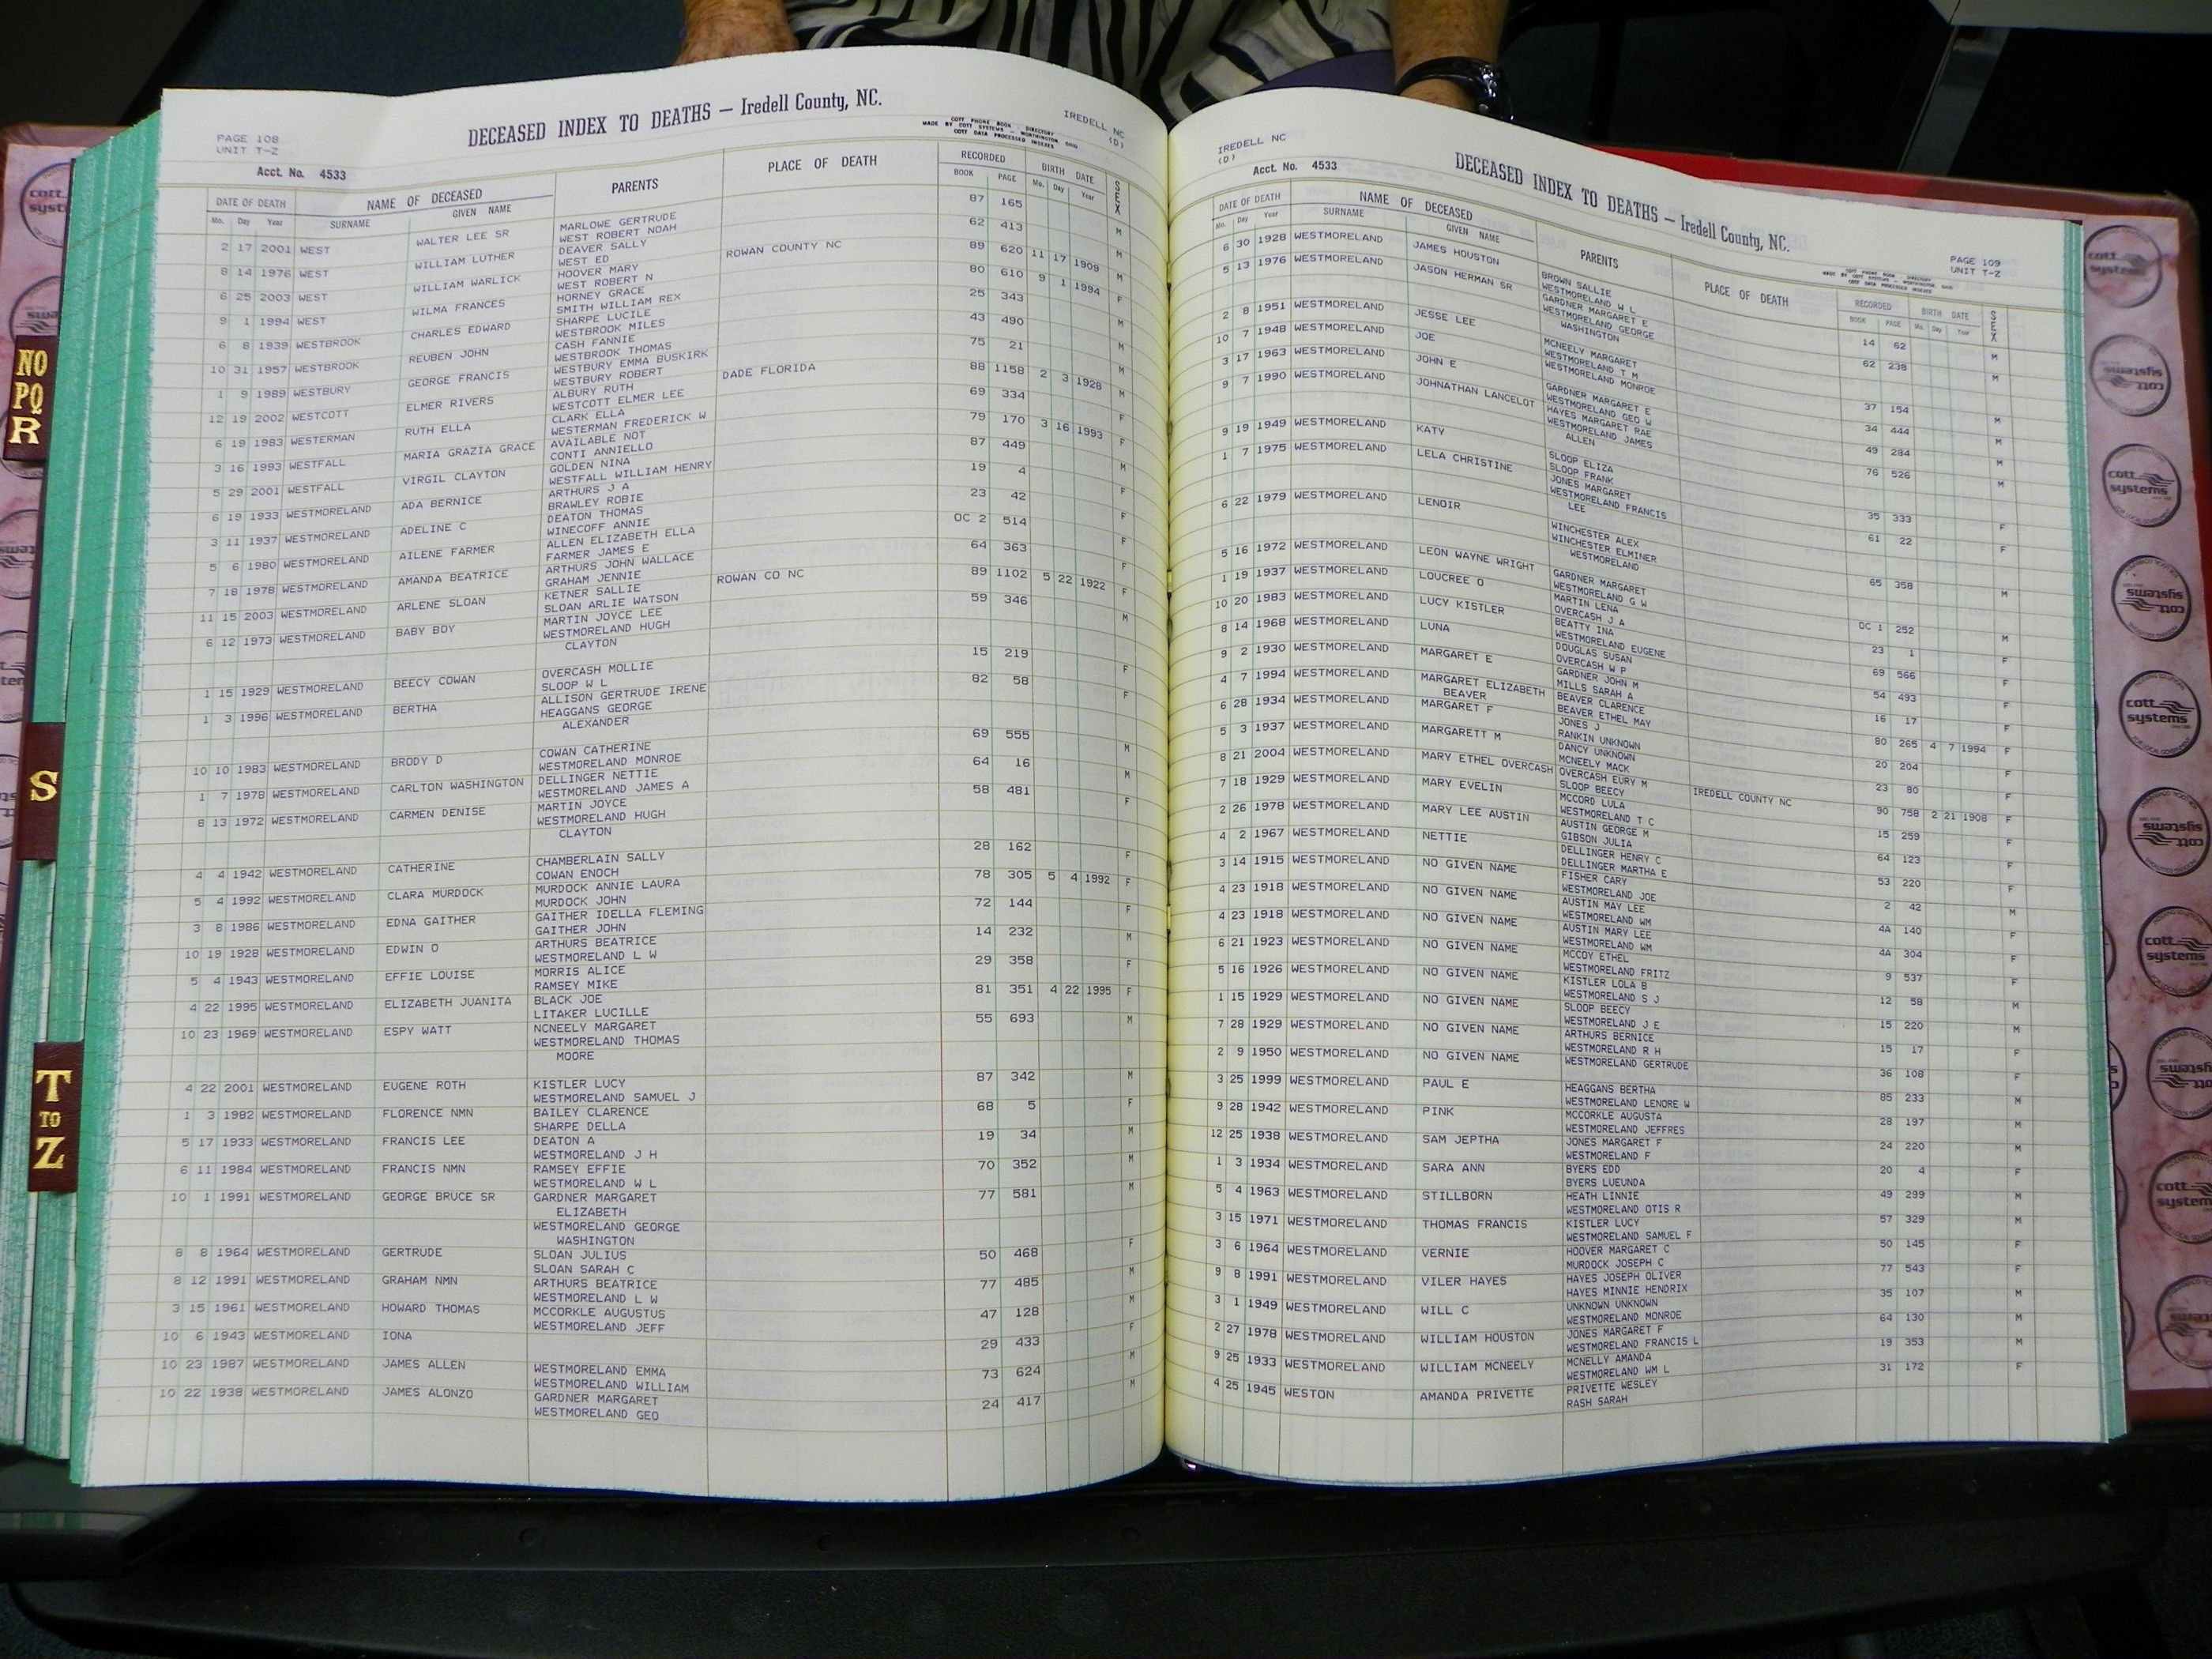 DECEASED INDEX TO DEATHS — Iredell County, NC.
PAGE 108
UNIT T-Z
IREDELL NC
(D)
COTT PHONE BOOK - DIRECTORY
MADE BY COTT SYSTEMS — WORTHINGTON, OHIO
COTT DATA PROCESSED INDEXES
Acct. No. 4533
DATE OF DEATH NAME OF DECEASED PARENTS PLACE OF DEATH RECORDED BIRTH DATE SEX
Mo. Day Year SURNAME GIVEN NAME BOOK PAGE Mo. Day Year
2 17 2001 WEST WALTER LEE SR MARLOWE GERTRUDE 87 165 M
WEST ROBERT NOAH
8 14 1976 WEST WILLIAM LUTHER DEAVER SALLY 62 413 M
WEST ED
6 25 2003 WEST WILLIAM WARLICK HOOVER MARY ROWAN COUNTY NC 89 620 11 17 1909 M
WEST ROBERT N
9 1 1994 WEST WILMA FRANCES HORNEY GRACE 80 610 9 1 1994 F
SMITH WILLIAM REX
6 8 1939 WESTBROOK CHARLES EDWARD SHARPE LUCILE 25 343 M
WESTBROOK MILES
10 31 1957 WESTBROOK REUBEN JOHN CASH FANNIE 43 490 M
WESTBROOK THOMAS
1 9 1989 WESTBURY GEORGE FRANCIS WESTBURY EMMA BUSKIRK 75 21 M
WESTBURY ROBERT
12 19 2002 WESTCOTT ELMER RIVERS ALBURY RUTH DADE FLORIDA 88 1158 2 3 1928 M
WESTCOTT ELMER LEE
6 19 1983 WESTERMAN RUTH ELLA CLARK ELLA 69 334 F
WESTERMAN FREDERICK W
3 16 1993 WESTFALL MARIA GRAZIA GRACE AVAILABLE NOT 79 170 3 16 1993 F
CONTI ANNIELLO
5 29 2001 WESTFALL VIRGIL CLAYTON GOLDEN NINA 87 449 M
WESTFALL WILLIAM HENRY
6 19 1933 WESTMORELAND ADA BERNICE ARTHURS J A 19 4 F
BRAWLEY ROBIE
3 11 1937 WESTMORELAND ADELINE C DEATON THOMAS 23 42 F
WINECOFF ANNIE
5 6 1980 WESTMORELAND AILENE FARMER ALLEN ELIZABETH ELLA OC 2 514 F
FARMER JAMES E
7 18 1978 WESTMORELAND AMANDA BEATRICE ARTHURS JOHN WALLACE 64 363 F
GRAHAM JENNIE
11 15 2003 WESTMORELAND ARLENE SLOAN KETNER SALLIE ROWAN CO NC 89 1102 5 22 1922 F
SLOAN ARLIE WATSON
6 12 1973 WESTMORELAND BABY BOY MARTIN JOYCE LEE 59 346 M
WESTMORELAND HUGH
CLAYTON
1 15 1929 WESTMORELAND BEECY COWAN OVERCASH MOLLIE 15 219 F
SLOOP W L
1 3 1996 WESTMORELAND BERTHA ALLISON GERTRUDE IRENE 82 58 F
HEAGGANS GEORGE
ALEXANDER
10 10 1983 WESTMORELAND BRODY D COWAN CATHERINE 69 555 M
WESTMORELAND MONROE
1 7 1978 WESTMORELAND CARLTON WASHINGTON DELLINGER NETTIE 64 16 M
WESTMORELAND JAMES A
8 13 1972 WESTMORELAND CARMEN DENISE MARTIN JOYCE 58 481 F
WESTMORELAND HUGH
CLAYTON
4 4 1942 WESTMORELAND CATHERINE CHAMBERLAIN SALLY 28 162 F
COWAN ENOCH
5 4 1992 WESTMORELAND CLARA MURDOCK MURDOCK ANNIE LAURA 78 305 5 4 1992 F
MURDOCK JOHN
3 8 1986 WESTMORELAND EDNA GAITHER GAITHER IDELLA FLEMING 72 144 F
GAITHER JOHN
10 19 1928 WESTMORELAND EDWIN O ARTHURS BEATRICE 14 232 M
WESTMORELAND L W
5 4 1943 WESTMORELAND EFFIE LOUISE MORRIS ALICE 29 358 F
RAMSEY MIKE
4 22 1995 WESTMORELAND ELIZABETH JUANITA BLACK JOE 81 351 4 22 1995 F
LITAKER LUCILLE
10 23 1969 WESTMORELAND ESPY WATT NCNEELY MARGARET 55 693 M
WESTMORELAND THOMAS
MOORE
4 22 2001 WESTMORELAND EUGENE ROTH KISTLER LUCY 87 342 M
WESTMORELAND SAMUEL J
1 3 1982 WESTMORELAND FLORENCE NMN BAILEY CLARENCE 68 5 F
SHARPE DELLA
5 17 1933 WESTMORELAND FRANCIS LEE DEATON A 19 34 M
WESTMORELAND J H
6 11 1984 WESTMORELAND FRANCIS NMN RAMSEY EFFIE 70 352 M
WESTMORELAND W L
10 1 1991 WESTMORELAND GEORGE BRUCE SR GARDNER MARGARET 77 581 M
ELIZABETH
WESTMORELAND GEORGE
WASHINGTON
8 8 1964 WESTMORELAND GERTRUDE SLOAN JULIUS 50 468 F
SLOAN SARAH C
8 12 1991 WESTMORELAND GRAHAM NMN ARTHURS BEATRICE 77 485 M
WESTMORELAND L W
3 15 1961 WESTMORELAND HOWARD THOMAS MCCORKLE AUGUSTUS 47 128 M
WESTMORELAND JEFF
10 6 1943 WESTMORELAND IONA 29 433 F
10 23 1987 WESTMORELAND JAMES ALLEN WESTMORELAND EMMA 73 624 M
WESTMORELAND WILLIAM
10 22 1938 WESTMORELAND JAMES ALONZO GARDNER MARGARET 24 417 M
WESTMORELAND GEO
IREDELL NC
(D)
DECEASED INDEX TO DEATHS — Iredell County, NC.
PAGE 109
UNIT T-Z
Acct. No. 4533
COTT PHONE BOOK - DIRECTORY
MADE BY COTT SYSTEMS — WORTHINGTON, OHIO
COTT DATA PROCESSED INDEXES
DATE OF DEATH NAME OF DECEASED PARENTS PLACE OF DEATH RECORDED BIRTH DATE SEX
Mo. Day Year SURNAME GIVEN NAME BOOK PAGE Mo. Day Year
6 30 1928 WESTMORELAND JAMES HOUSTON BROWN SALLIE 14 62 M
WESTMORELAND W L
5 13 1976 WESTMORELAND JASON HERMAN SR GARDNER MARGARET E 62 238 M
WESTMORELAND GEORGE
WASHINGTON
2 8 1951 WESTMORELAND JESSE LEE MCNEELY MARGARET 37 154 M
WESTMORELAND T M
10 7 1948 WESTMORELAND JOE WESTMORELAND MONROE 34 444 M
3 17 1963 WESTMORELAND JOHN E GARDNER MARGARET E 49 284 M
WESTMORELAND GEO W
9 7 1990 WESTMORELAND JOHNATHAN LANCELOT HAYES MARGARET RAE 76 526 M
WESTMORELAND JAMES
ALLEN
9 19 1949 WESTMORELAND KATY SLOOP ELIZA 35 333 F
SLOOP FRANK
1 7 1975 WESTMORELAND LELA CHRISTINE JONES MARGARET 61 22 F
WESTMORELAND FRANCIS
LEE
6 22 1979 WESTMORELAND LENOIR WINCHESTER ALEX 65 358 M
WINCHESTER ELMINER
WESTMORELAND
5 16 1972 WESTMORELAND LEON WAYNE WRIGHT GARDNER MARGARET OC 1 252 M
WESTMORELAND G W
1 19 1937 WESTMORELAND LOUCREE O MARTIN LENA 23 1 F
OVERCASH J A
10 20 1983 WESTMORELAND LUCY KISTLER BEATTY INA 69 566 F
WESTMORELAND EUGENE
8 14 1968 WESTMORELAND LUNA DOUGLAS SUSAN 54 493 F
OVERCASH W P
9 2 1930 WESTMORELAND MARGARET E GARDNER JOHN M 16 17 F
MILLS SARAH A
4 7 1994 WESTMORELAND MARGARET ELIZABETH BEAVER CLARENCE 80 265 4 7 1994 F
BEAVER BEAVER ETHEL MAY
6 28 1934 WESTMORELAND MARGARET F JONES J 20 204 F
RANKIN UNKNOWN
5 3 1937 WESTMORELAND MARGARETT M DANCY UNKNOWN 23 80 F
MCNEELY MACK
8 21 2004 WESTMORELAND MARY ETHEL OVERCASH OVERCASH EURY M IREDELL COUNTY NC 90 758 2 21 1908 F
SLOOP BEECY
7 18 1929 WESTMORELAND MARY EVELIN MCCORD LULA 15 259 F
WESTMORELAND T C
2 26 1978 WESTMORELAND MARY LEE AUSTIN AUSTIN GEORGE M 64 123 F
GIBSON JULIA
4 2 1967 WESTMORELAND NETTIE DELLINGER HENRY C 53 220 F
DELLINGER MARTHA E
3 14 1915 WESTMORELAND NO GIVEN NAME FISHER CARY 2 42 M
WESTMORELAND JOE
4 23 1918 WESTMORELAND NO GIVEN NAME AUSTIN MAY LEE 4A 140 F
WESTMORELAND WM
4 23 1918 WESTMORELAND NO GIVEN NAME AUSTIN MARY LEE 4A 304 F
WESTMORELAND WM
6 21 1923 WESTMORELAND NO GIVEN NAME MCCOY ETHEL 9 537 F
WESTMORELAND FRITZ
5 16 1926 WESTMORELAND NO GIVEN NAME KISTLER LOLA B 12 58 M
WESTMORELAND S J
1 15 1929 WESTMORELAND NO GIVEN NAME SLOOP BEECY 15 220 M
WESTMORELAND J E
7 28 1929 WESTMORELAND NO GIVEN NAME ARTHURS BERNICE 15 17 F
WESTMORELAND R H
2 9 1950 WESTMORELAND NO GIVEN NAME WESTMORELAND GERTRUDE 36 108 F
3 25 1999 WESTMORELAND PAUL E HEAGGANS BERTHA 85 233 M
WESTMORELAND LENORE W
9 28 1942 WESTMORELAND PINK MCCORKLE AUGUSTA 28 197 M
WESTMORELAND JEFFRES
12 25 1938 WESTMORELAND SAM JEPTHA JONES MARGARET F 24 220 M
WESTMORELAND F
1 3 1934 WESTMORELAND SARA ANN BYERS EDD 20 4 F
BYERS LUEUNDA
5 4 1963 WESTMORELAND STILLBORN HEATH LINNIE 49 299 M
WESTMORELAND OTIS R
3 15 1971 WESTMORELAND THOMAS FRANCIS KISTLER LUCY 57 329 M
WESTMORELAND SAMUEL F
3 6 1964 WESTMORELAND VERNIE HOOVER MARGARET C 50 145 F
MURDOCK JOSEPH C
9 8 1991 WESTMORELAND VILER HAYES HAYES JOSEPH OLIVER 77 543 F
HAYES MINNIE HENDRIX
3 1 1949 WESTMORELAND WILL C UNKNOWN UNKNOWN 35 107 M
WESTMORELAND MONROE
2 27 1978 WESTMORELAND WILLIAM HOUSTON JONES MARGARET F 64 130 M
WESTMORELAND FRANCIS L
9 25 1933 WESTMORELAND WILLIAM MCNEELY MCNELLY AMANDA 19 353 M
WESTMORELAND WM L
4 25 1945 WESTON AMANDA PRIVETTE PRIVETTE WESLEY 31 172 F
RASH SARAH
NO
PQ
R
S
T
TO
Z
cott
systems